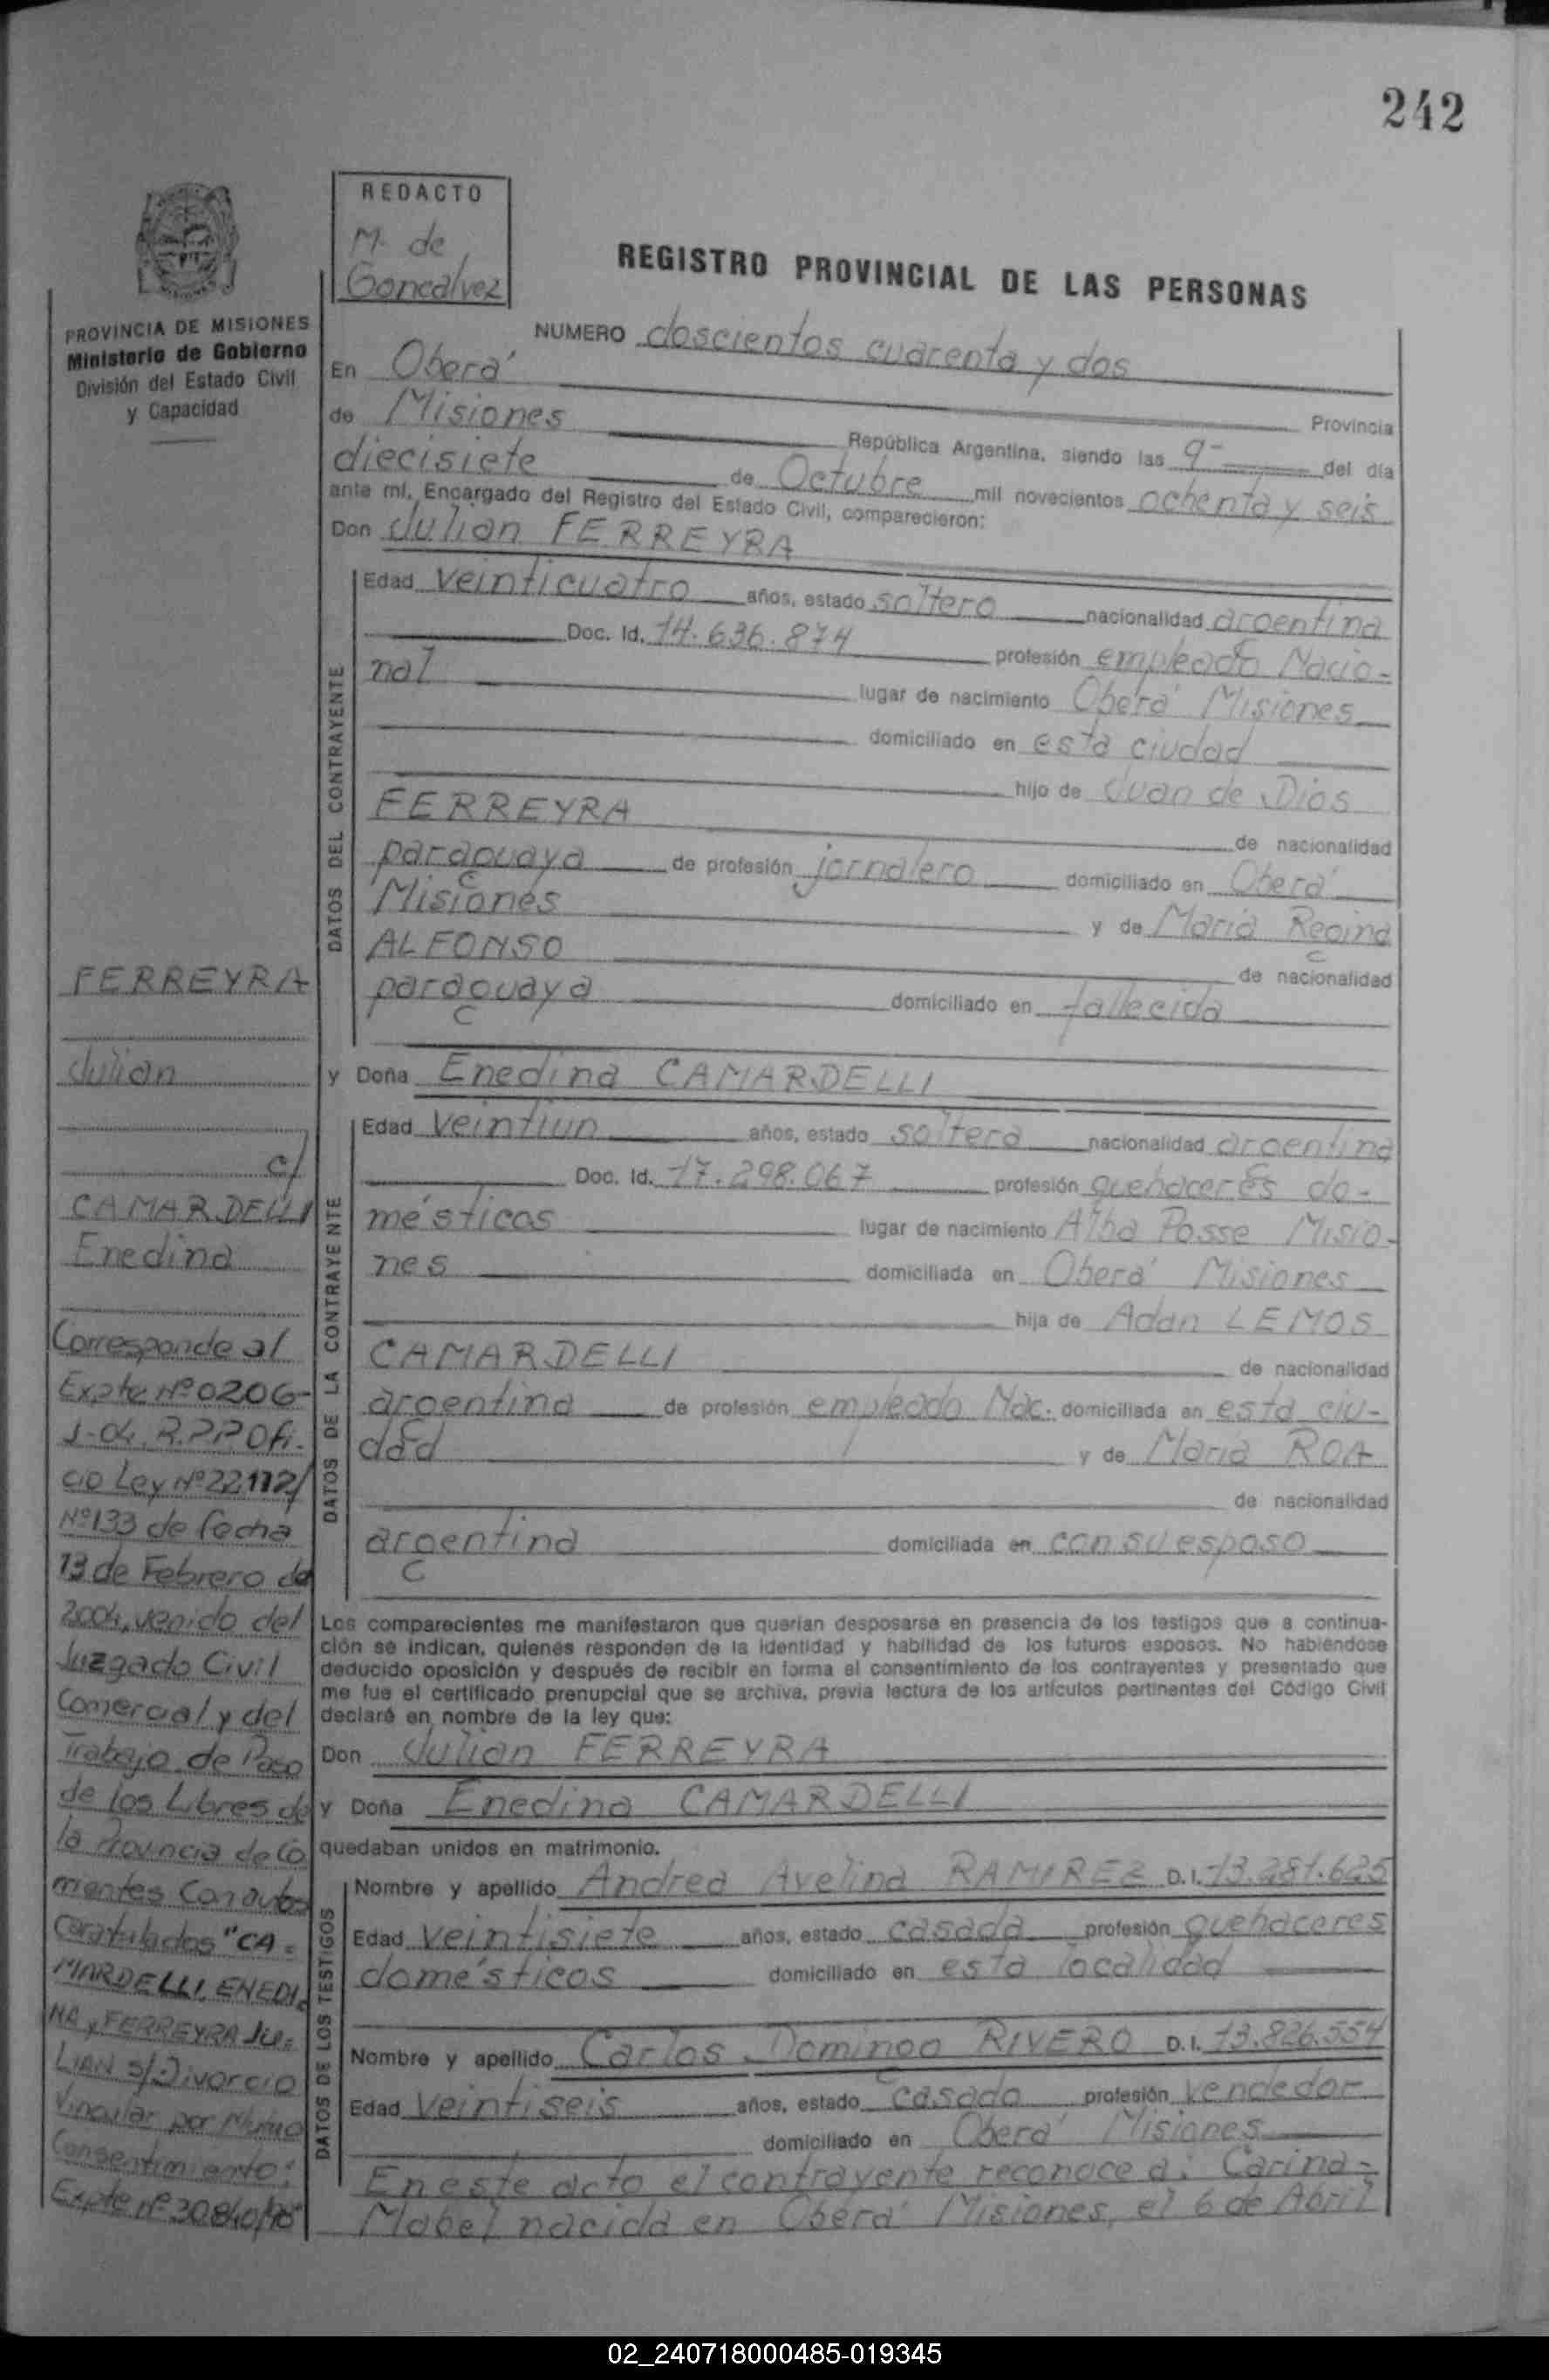 242
REDACTO
M. de
Goncalvez
REGISTRO PROVINCIAL DE LAS PERSONAS
PROVINCIA DE MISIONES
Ministerio de Gobierno
División del Estado Civil
y Capacidad
NUMERO doscientos cuarenta y dos
En Oberá
Provincia
de Misiones República Argentina, siendo las 9- del día
diecisiete de Octubre mil novecientos ochenta y seis
ante mí, Encargado del Registro del Estado Civil, comparecieron:
Don Julian FERREYRA
DATOS DEL CONTRAYENTE
Edad veinticuatro años, estado soltero nacionalidad argentina
Doc. Id. 14.636.874 profesión empleado Nacio-
nal lugar de nacimiento Oberá Misiones
domiciliado en esta ciudad
hijo de Juan de Dios
FERREYRA de nacionalidad
paraguaya de profesión jornalero domiciliado en Oberá
Misiones y de Maria Regina
ALFONSO de nacionalidad
paraguaya domiciliado en fallecida
y Doña Enedina CAMARDELLI
DATOS DE LA CONTRAYENTE
Edad veintiun años, estado soltera nacionalidad argentina
Doc. Id. 17.298.067 profesión quehaceres do-
mésticos lugar de nacimiento Alba Posse Misio-
nes domiciliada en Oberá Misiones
hija de Adan LEMOS
CAMARDELLI de nacionalidad
argentina de profesión empleado Nac. domiciliada en esta ciu-
dad y de Maria ROA
de nacionalidad
argentina domiciliada en con su esposo
Los comparecientes me manifestaron que querían desposarse en presencia de los testigos que a continua-
ción se indican, quienes responden de la identidad y habilidad de los futuros esposos. No habiéndose
deducido oposición y después de recibir en forma el consentimiento de los contrayentes y presentado que
me fue el certificado prenupcial que se archiva, previa lectura de los artículos pertinentes del Código Civil
declaré en nombre de la ley que:
Don Julian FERREYRA
y Doña Enedina CAMARDELLI
quedaban unidos en matrimonio.
DATOS DE LOS TESTIGOS
Nombre y apellido Andrea Avelina RAMIREZ D.I. 13.281.625
Edad veintisiete años, estado casada profesión quehaceres
domésticos domiciliado en esta localidad
Nombre y apellido Carlos Domingo RIVERO D.I. 13.826.554
Edad veintiseis años, estado casado profesión vendedor
domiciliado en Oberá Misiones
En este acto el contrayente reconoce a: Carina-
Mabel nacida en Oberá Misiones, el 6 de Abril
FERREYRA
Julian
c/
CAMARDELLI
Enedina
Corresponde al
Expte Nº 0206-
J-04. R.P.P Ofi-
cio Ley Nº 22.172/
Nº 133 de fecha
13 de Febrero de
2004, venido del
Juzgado Civil
Comercial y del
Trabajo de Paso
de los Libres de
la Provincia de Co
rrientes Con autos
Caratulados "CA=
MARDELLI, ENEDI=
NA y FERREYRA JU=
LIAN s/Divorcio
Vincular por Mutuo
Consentimiento;
Expte nº 30840/
02_240718000485-019345